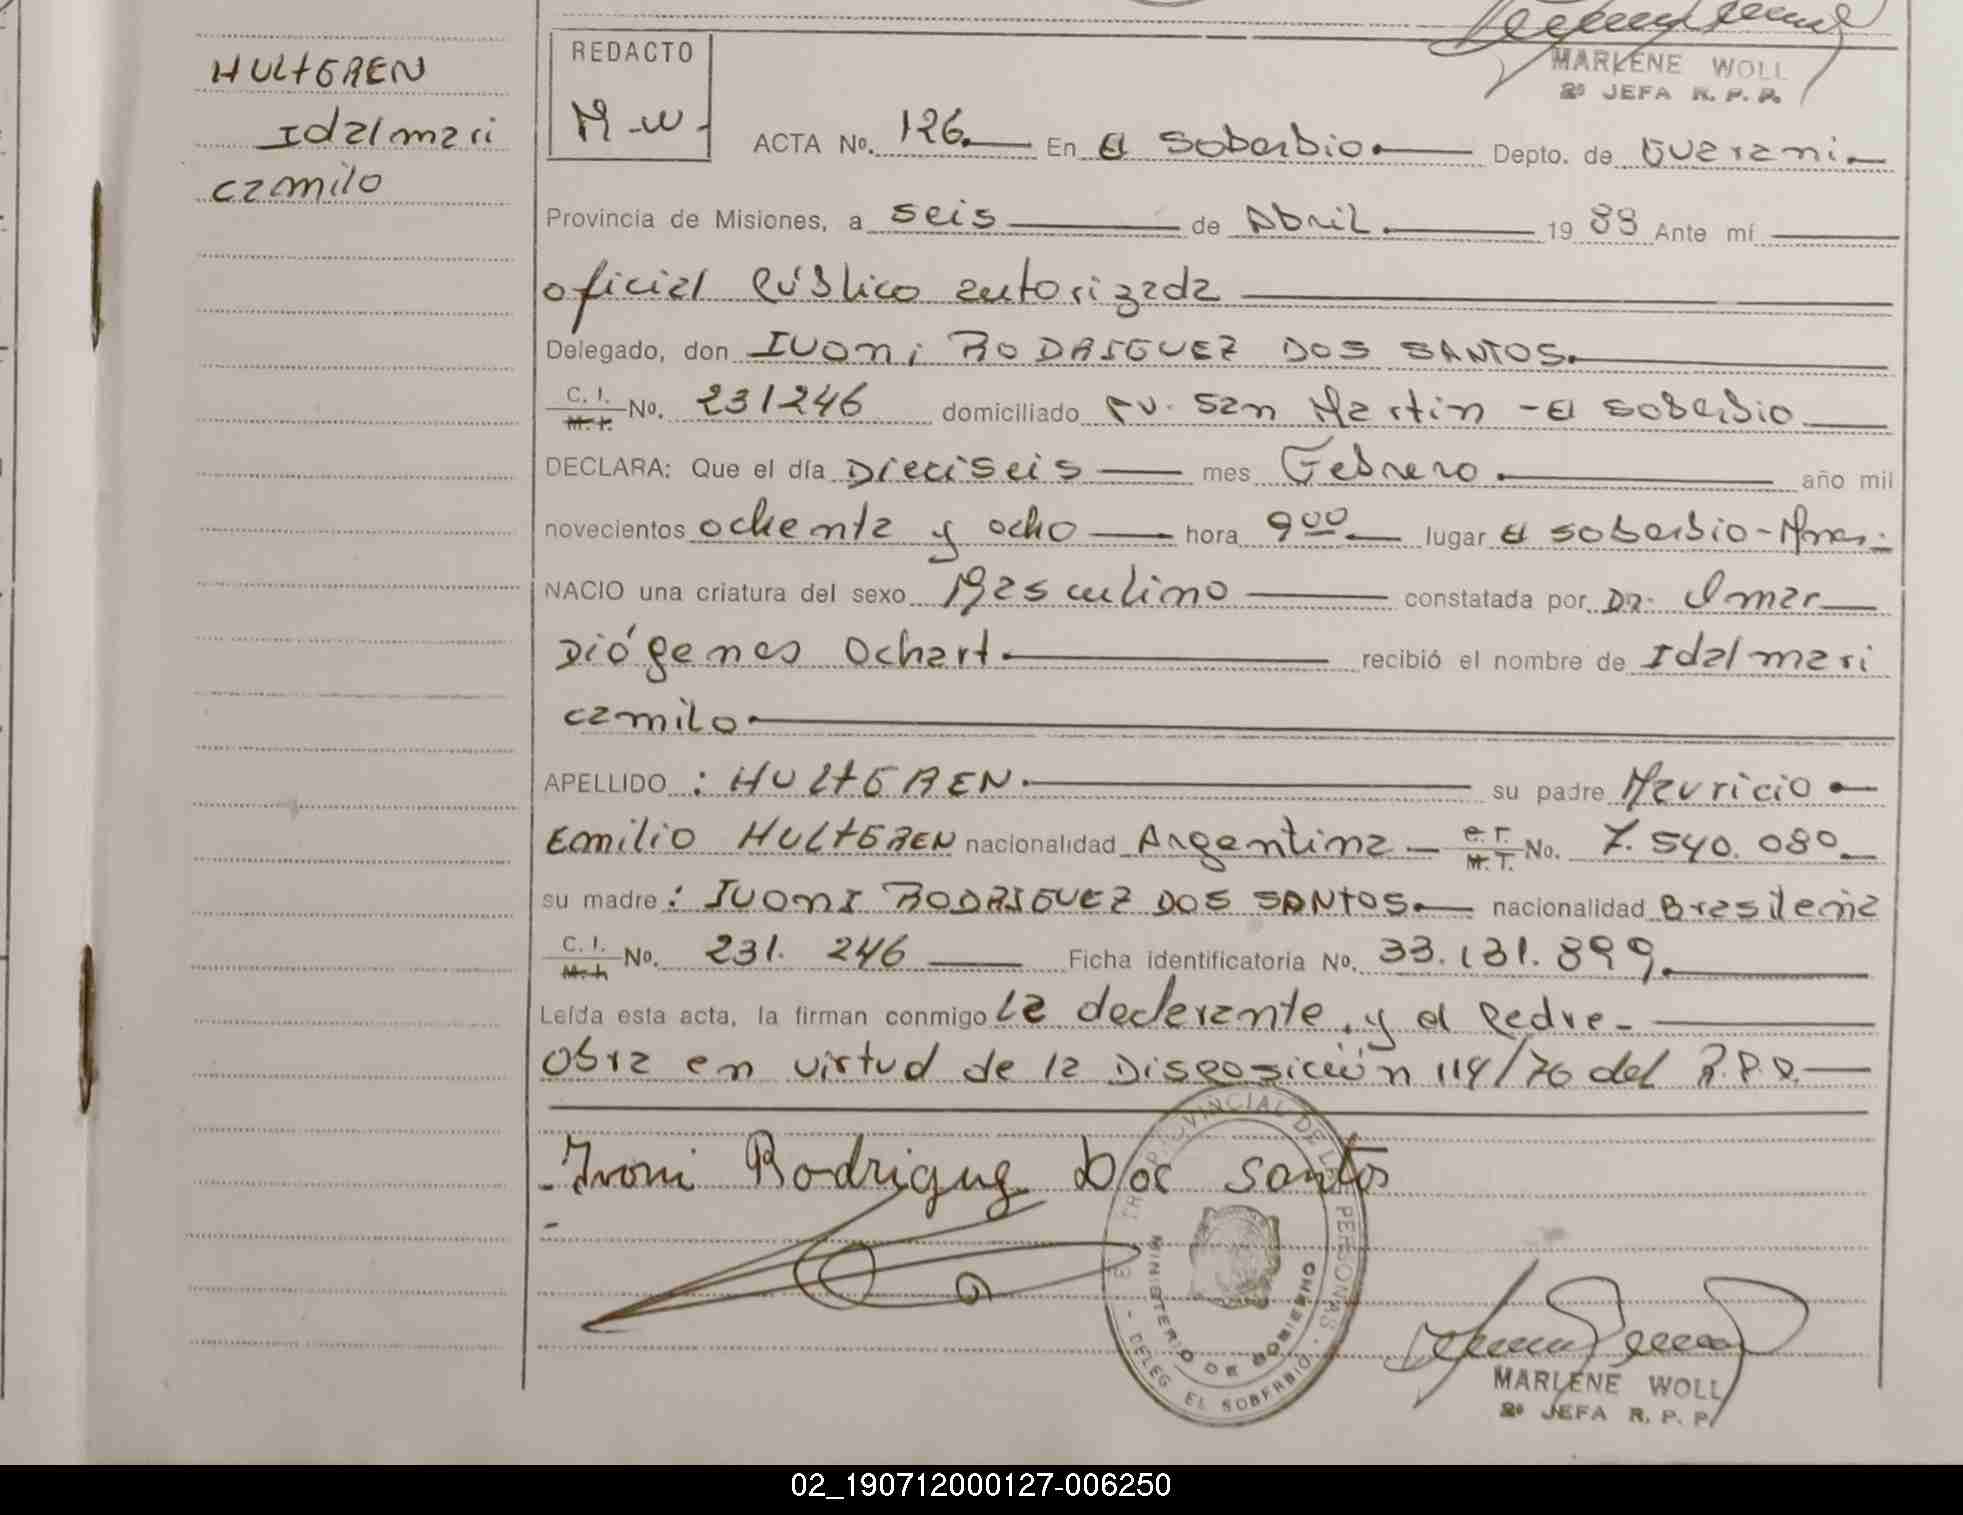 MARLENE WOLL
2º JEFA R. P. P.
HULtGREN
Idalmari
camilo
REDACTO
M-w-
ACTA No. 126. En El Soberbio Depto. de Guarani
Provincia de Misiones, a seis de Abril. 1989 Ante mí
oficial Público autorizada
Delegado, don IVONI RODRIGUEZ DOS SANTOS.
C. I. No. 231246 domiciliado Av. San Martin - El Soberbio
M. I.
DECLARA: Que el día Dieciseis mes Febrero año mil
novecientos ochenta y ocho hora 9 00 lugar El Soberbio-Mnes.
NACIO una criatura del sexo Masculino constatada por Dr. Omar
Diógenes Ochart. recibió el nombre de Idalmari
camilo
APELLIDO : HULtGREN. su padre Mauricio
Emilio HULtGREN nacionalidad Argentina M. T. No. 7.540.080
su madre : IVONI RODRIGUEZ DOS SANTOS. nacionalidad Brasileña
C. I. No. 231. 246 Ficha identificatoria No. 33.131.899.
M. I.
Leída esta acta, la firman conmigo la declarante, y el Padre-
Obra en virtud de la Disposición 114/76 del R.P.P.
Ivoni Rodrigue Dos Santos
PROVINCIAL DE LAS PERSONAS
MINISTERIO DE GOBIERNO
DELEG EL SOBERBIO
MARLENE WOLL
2º JEFA R. P. P.
02_190712000127-006250